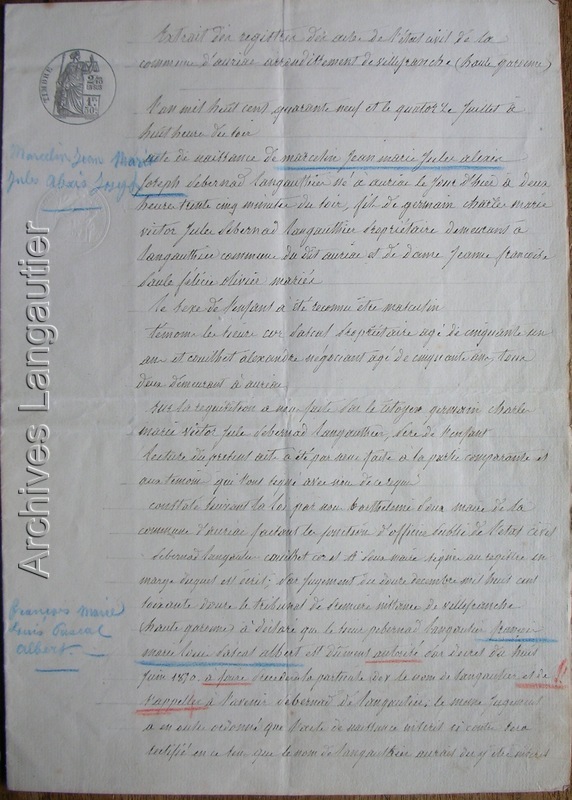 Extrait des registres des actes de l'état civil de la
commune d'auriac arrondissement de villefranche (haute garonne)
TIMBRE
L'an mil huit cent quarante neuf et le quatorze Juillet à
huit heures du soir
Marcelin Jean Marie
Jules Alexis Joseph
acte de naissance de marcelin jean marie jules alexis
Joseph debernad langauthier né à auriac le jour d'hier à deux
heures trente cinq minutes du soir, fils de germain charles marie
victor Jules debernad langauthier propriétaire demeurant à
langauthier commune du dit auriac et de dame jeanne françoise
paule félicie olivier mariés
Le sexe de l'enfant a été reconnu être masculin
témoins le sieur cos pascal propriétaire agé de cinquante un
ans et couilhet alexandre négociant âgé de cinquante ans, tous
deux demeurant à auriac
sur la requisition a nous faite par le citoyen germain charles
marie victor jules debernad langauthier, père de l'enfant
Lecture du présent acte a été par nous faite a la partie comparante et
aux témoins qui l'ont signé avec nous de ce requis
constaté suivant la loi par nous Barthelemi maire de la
commune d'auriac faisant les fonctions d'officier public de l'état civil
debernad langautier couilhet cos et maire signés au registre en
marge duquel est écrit: par jugement du douze decembre mil huit cent
soixante douze le tribunal de premiere instance de villefranche
(haute garonne) a déclaré que le sieur debernad langautier françois
François Marie
Louis Pascal
albert
marie louis pascal albert est dûment autorisé par décret du huit
juin 1870, à faire précéder la particule de le nom de langautier et de !!
s'appeller à l'avenir debernad de langautier. le même jugement
a en outre ordonné que l'acte de naissance inscrit ci contre sera
rectifié en ce sens que le nom de langauthier aurait dû y être inscrit
Archives Langautier